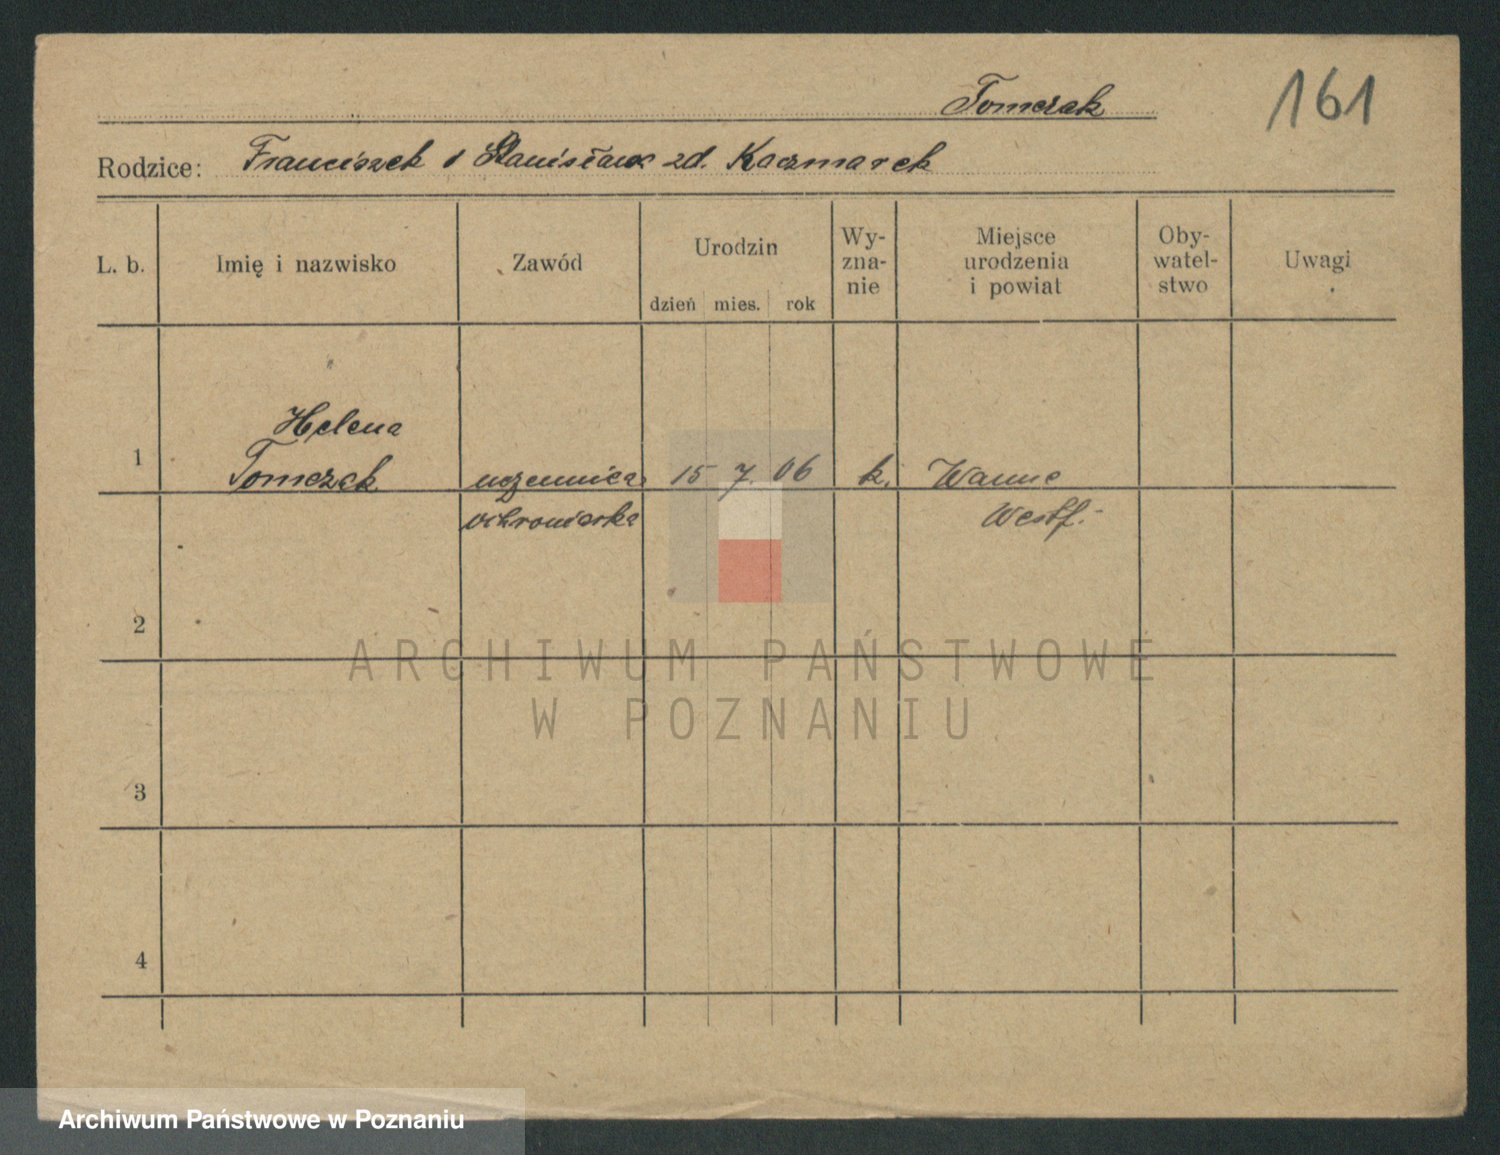 Tomczak
161
Rodzice: Franciszek i Stanisława zd. Kaczmarek
L. b.
Imię i nazwisko
Zawód
Urodzin
dzień mies. rok
Wy-
zna-
nie
Miejsce
urodzenia
i powiat
Oby-
watel-
stwo
Uwagi
Helena
1 Tomczak uczennica 15 7. 06 k. Wanne
ochroniarka Westf.
2
3
4
ARCHIWUM PAŃSTWOWE
W POZNANIU
Archiwum Państwowe w Poznaniu